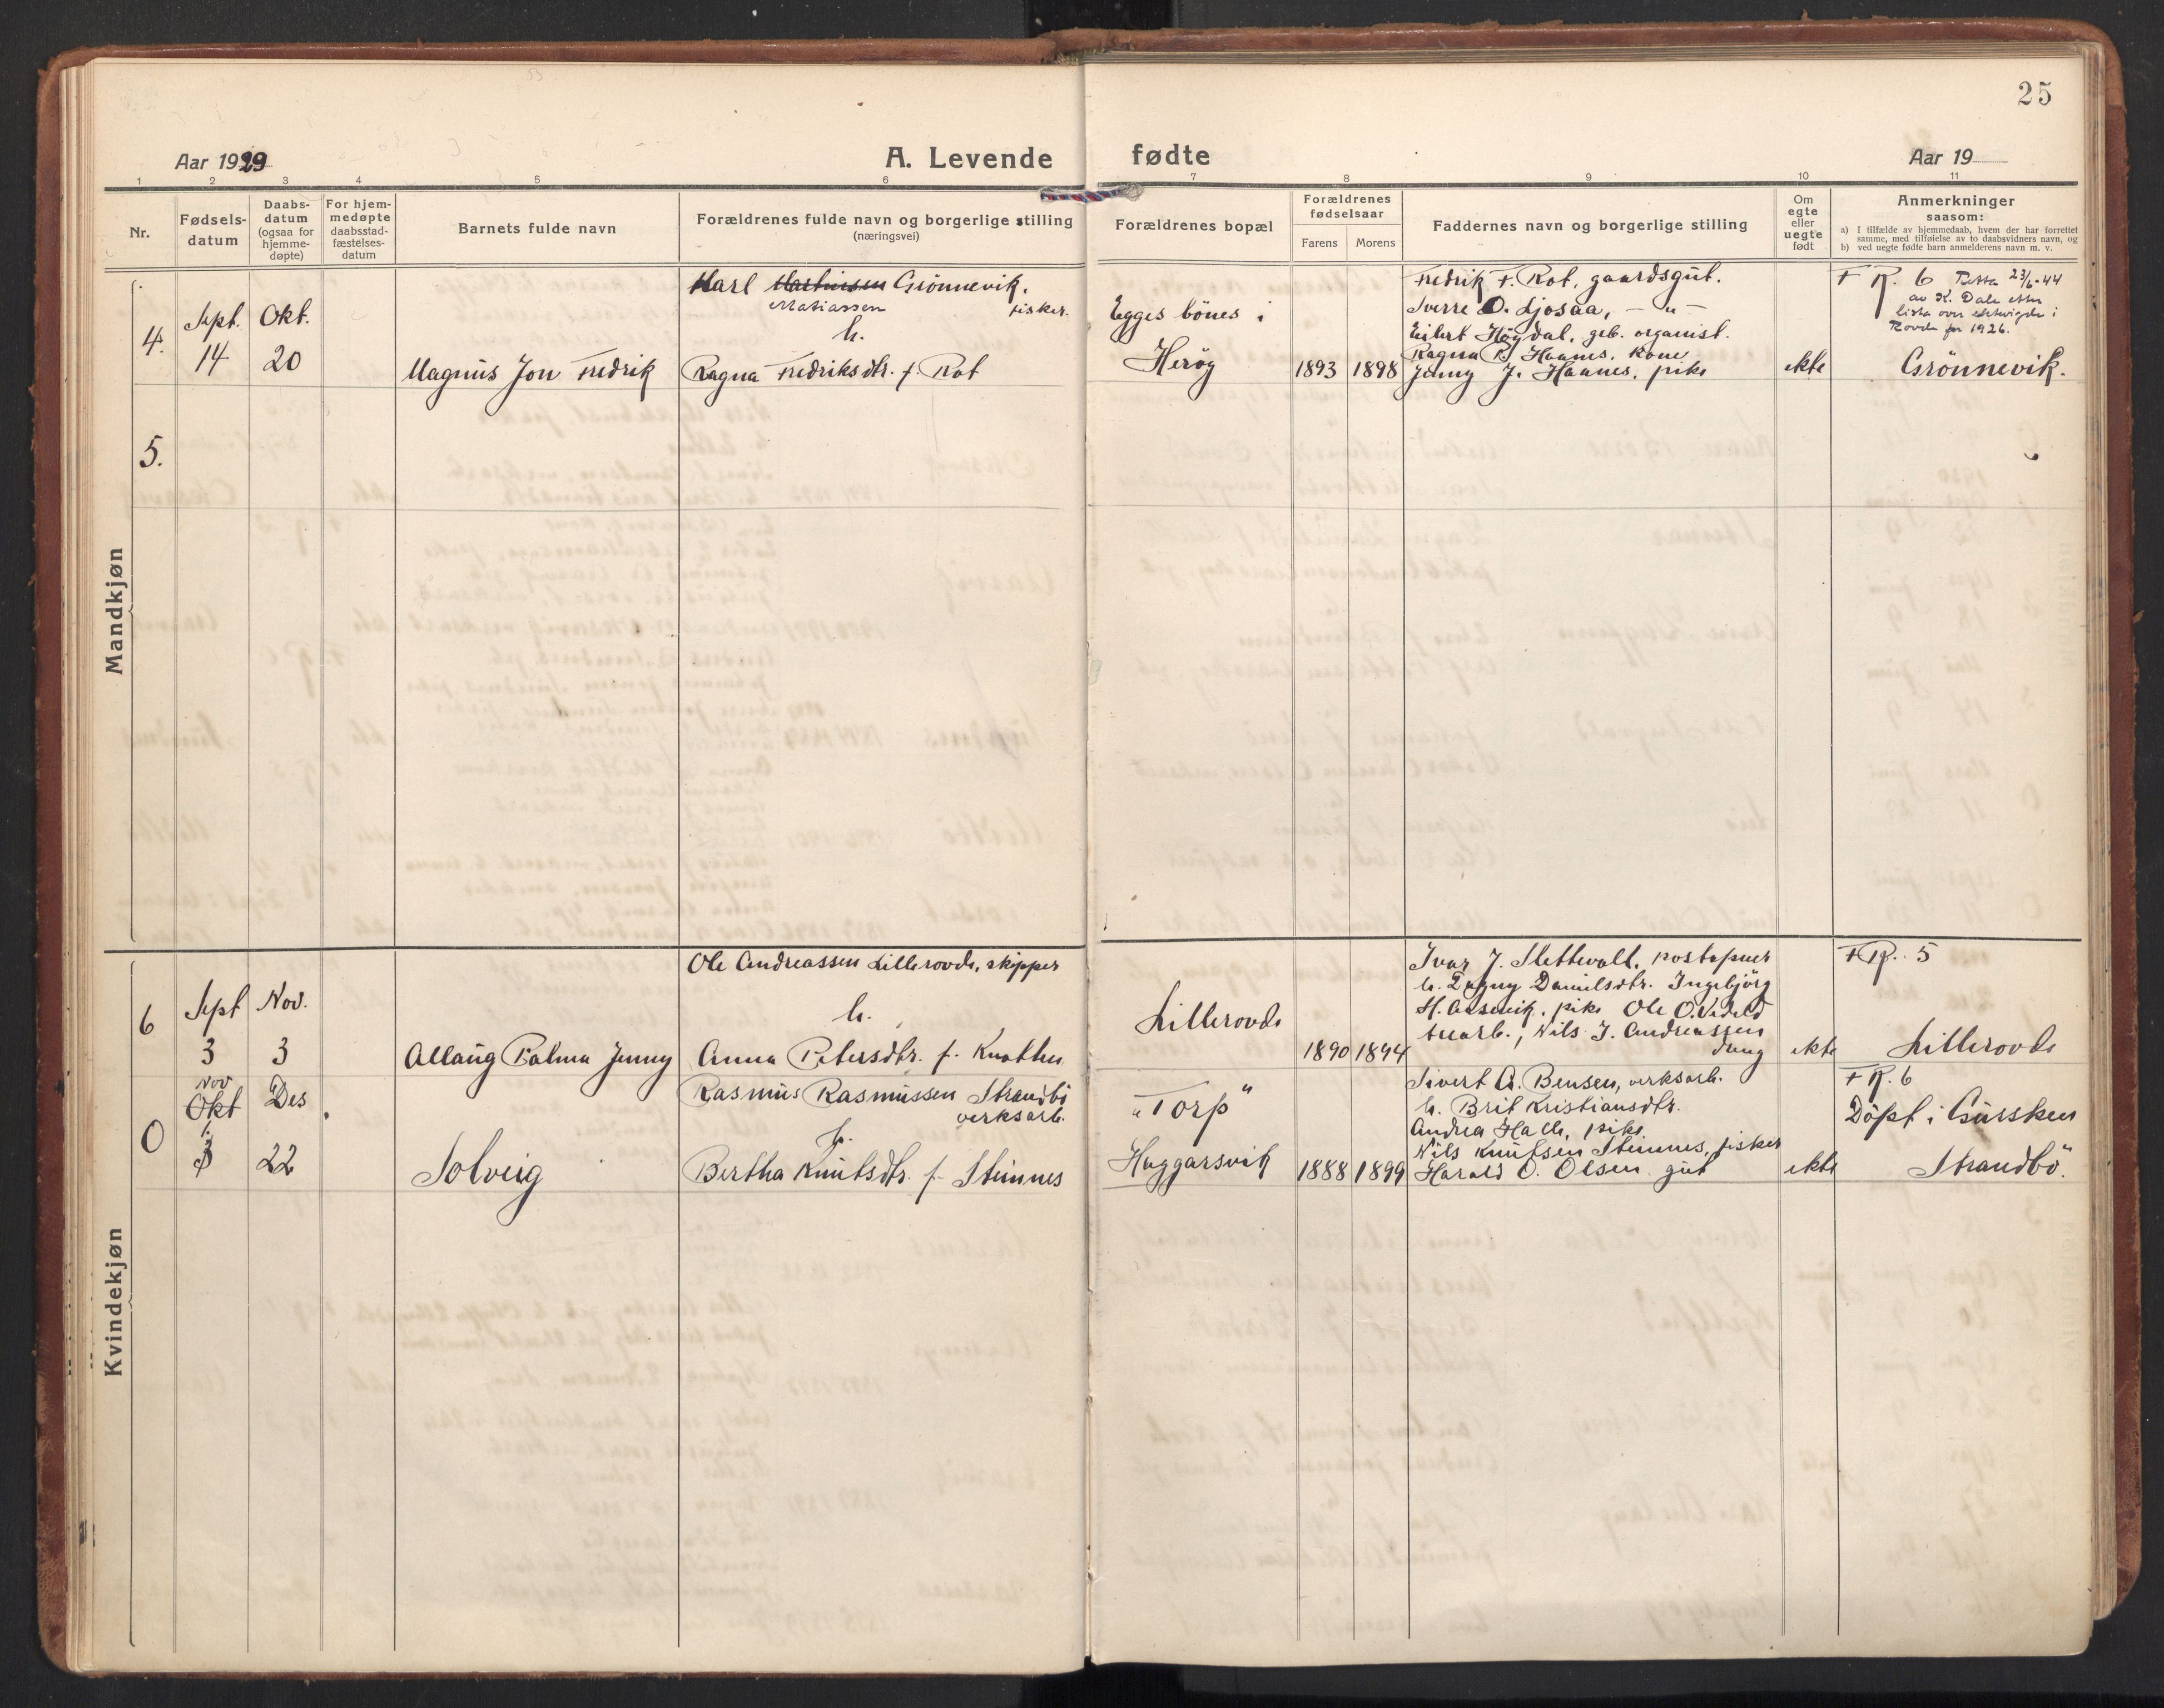 25
Aar 1929
A. Levende fødte
Aar 19
1 2 3 4 5 6 7 8 9 10 11
Nr.
Fødsels-
datum
Daabs-
datum
(ogsaa for
hjemme-
døpte)
For hjem-
medøpte
daabsstad-
fæstelses-
datum
Barnets fulde navn
Forældrenes fulde navn og borgerlige stilling
(næringsvei)
Forældrenes bopæl
Forældrenes
fødselsaar
Farens Morens
Faddernes navn og borgerlige stilling
Om
egte
eller
uegte
født
Anmerkninger
saasom:
a) I tilfælde av hjemmedaab, hvem der har forrettet
samme, med tilføielse av to daabsvidners navn, og
b) ved uegte fødte barn anmelderens navn m. v.
Mandkjøn
4.
Sept.
14
Okt.
20
Magnus Jon Fredrik
Karl Martinssen Grönnevik.
Matiassen fisker.
h.
Ragna Fredriksdtr. f. Rot
Egges bönes i
Heröy
1893 1898
Fredrik F. Rot, gaardsgut.
Sverre O. Ljosaa, — u —
Eilert Högdal, geb. organist.
Ragna P. Haanes, kone
Jenny J. Haanes, pike
ekte
+ R. 6 Retta 23/6-44
av K. Dale etter
lista over ektevigde i
Rovde for 1926.
Grönnevik.
5.
Kvindekjøn
6
Sept
3
Nov.
3
Allaug Palma Jenny
Ole Andreassen Lillerovde, skipper
h.
Anna Petersdtr. f. Knotten
Lillerovde
1890 1894
Ivar J. Slettevoll, postopner
h. Dagny Danielsdtr. Ingebjörg
H. Aasevik, pike Ole O.
Nils J. Andreassen
dreng
ekte
+ R. 5
Lillerovde
0
Nov
Okt
1.
3
Des
22
Solveig
Rasmus Rasmussen Strandbö
verksarb.
h.
Bertha Knutsdtr. f. Steinnes
"Torp"
Haggarsvik
1888 1899
Sivert A. Bensen, verksarb.
h. Brit Kristiansdtr.
Andrea Halle, pike
Nils Knutsen Steinnes, fisker
Harald O. Olsen gut
ekte
+ R. 6
Döpt i Gursken
Strandbö.